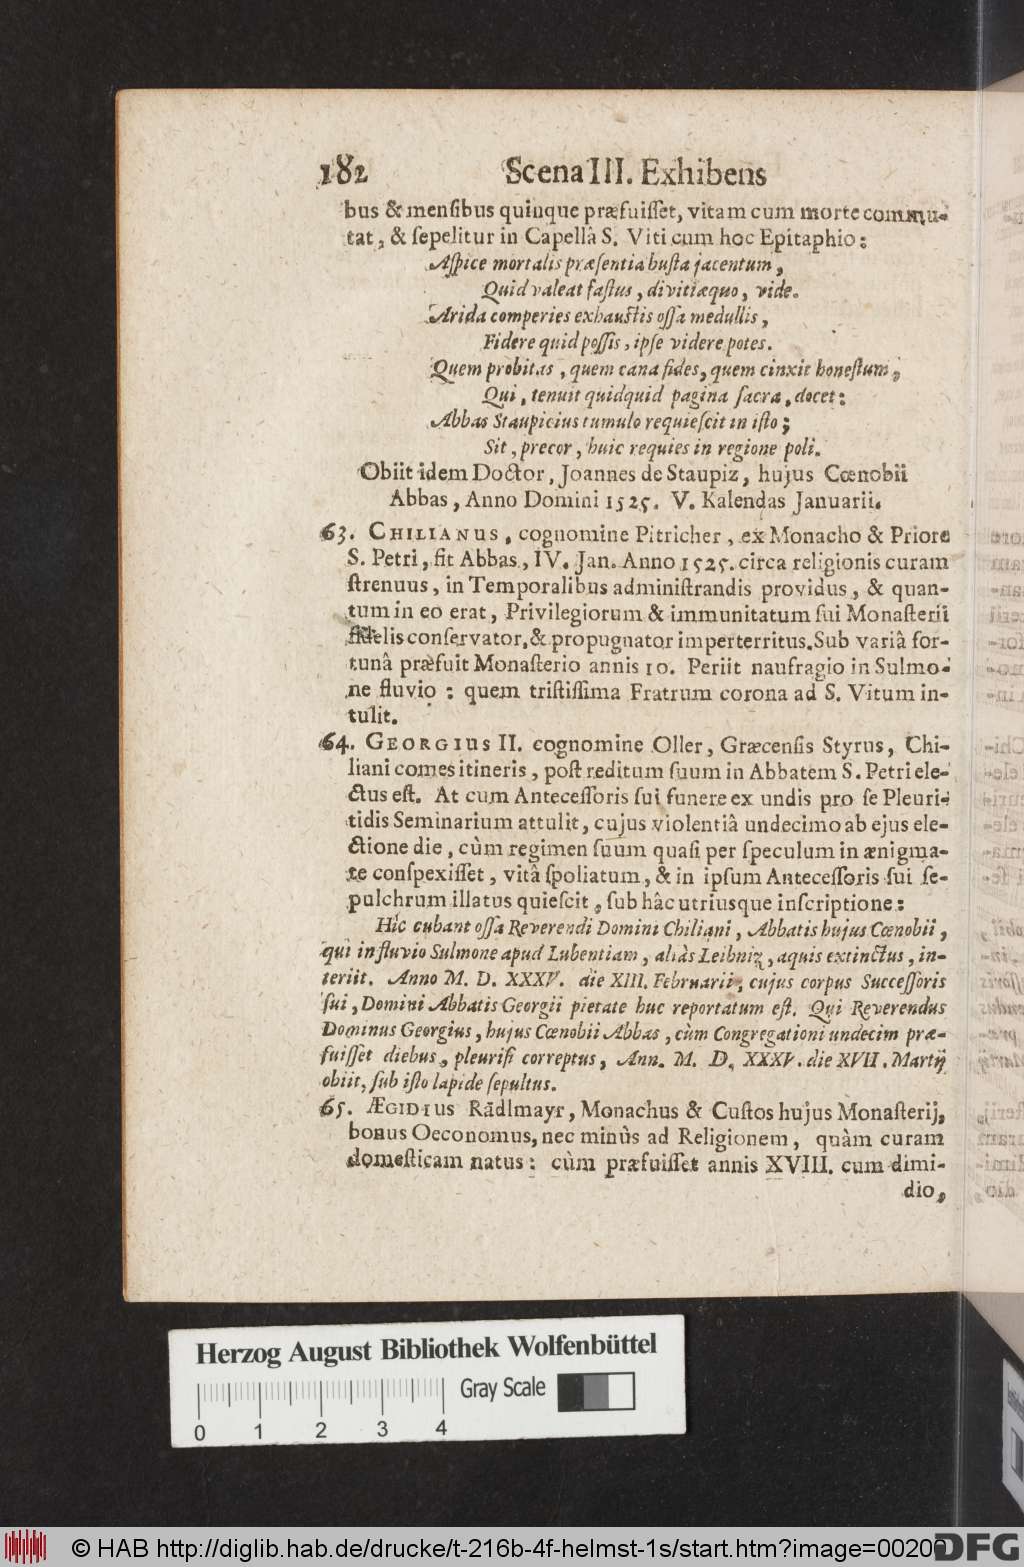 182 Scena III. Exhibens
bus & mensibus quinque præfuisset, vitam cum morte commu-
tat, & sepelitur in Capellâ S. Viti cum hoc Epitaphio:
Aspice mortalis præsentia busta jacentum,
Quid valeat fastus, divitiæquo, vide.
Arida comperies exhaustis ossa medullis,
Fidere quid possis, ipse videre potes.
Quem probitas, quem cana fides, quem cinxit honestum,
Qui, tenuit quidquid pagina sacra, docet:
Abbas Staupicius tumulo requiescit in isto;
Sit, precor, huic requies in regione poli.
Obiit idem Doctor, Joannes de Staupiz, hujus Cœnobii
Abbas, Anno Domini 1525. V. Kalendas Januarii.
63. CHILIANUS, cognomine Pitricher, ex Monacho & Priore
S. Petri, fit Abbas, IV. Jan. Anno 1525. circa religionis curam
strenuus, in Temporalibus administrandis providus, & quan-
tum in eo erat, Privilegiorum & immunitatum sui Monasterii
fidelis conservator, & propugnator imperterritus. Sub variâ for-
tunâ præfuit Monasterio annis 10. Periit naufragio in Sulmo-
ne fluvio: quem tristissima Fratrum corona ad S. Vitum in-
tulit.
64. GEORGIUS II. cognomine Oller, Græcensis Styrus, Chi-
liani comes itineris, post reditum suum in Abbatem S. Petri ele-
ctus est. At cum Antecessoris sui funere ex undis pro se Pleuri-
tidis Seminarium attulit, cujus violentiâ undecimo ab ejus ele-
ctione die, cùm regimen suum quasi per speculum in ænigma-
te conspexisset, vitâ spoliatum, & in ipsum Antecessoris sui se-
pulchrum illatus quiescit, sub hâc utriusque inscriptione:
Hîc cubant ossa Reverendi Domini Chiliani, Abbatis hujus Cœnobii,
qui in fluvio Sulmone apud Lubentiam, aliàs Leibniz, aquis extinctus, in-
teriit. Anno M. D. XXXV. die XIII. Februarii, cujus corpus Successoris
sui, Domini Abbatis Georgii pietate huc reportatum est. Qui Reverendus
Dominus Georgius, hujus Cœnobii Abbas, cùm Congregationi undecim præ-
fuisset diebus, pleurisi correptus, Ann. M. D. XXXV. die XVII. Martij
obiit, sub isto lapide sepultus.
65. ÆGIDIUS Rädlmayr, Monachus & Custos hujus Monasterij,
bonus Oeconomus, nec minùs ad Religionem, quàm curam
domesticam natus: cùm præfuisset annis XVIII. cum dimi-
dio,
Herzog August Bibliothek Wolfenbüttel
Gray Scale
0 1 2 3 4
© HAB http://diglib.hab.de/drucke/t-216b-4f-helmst-1s/start.htm?image=00200
DFG